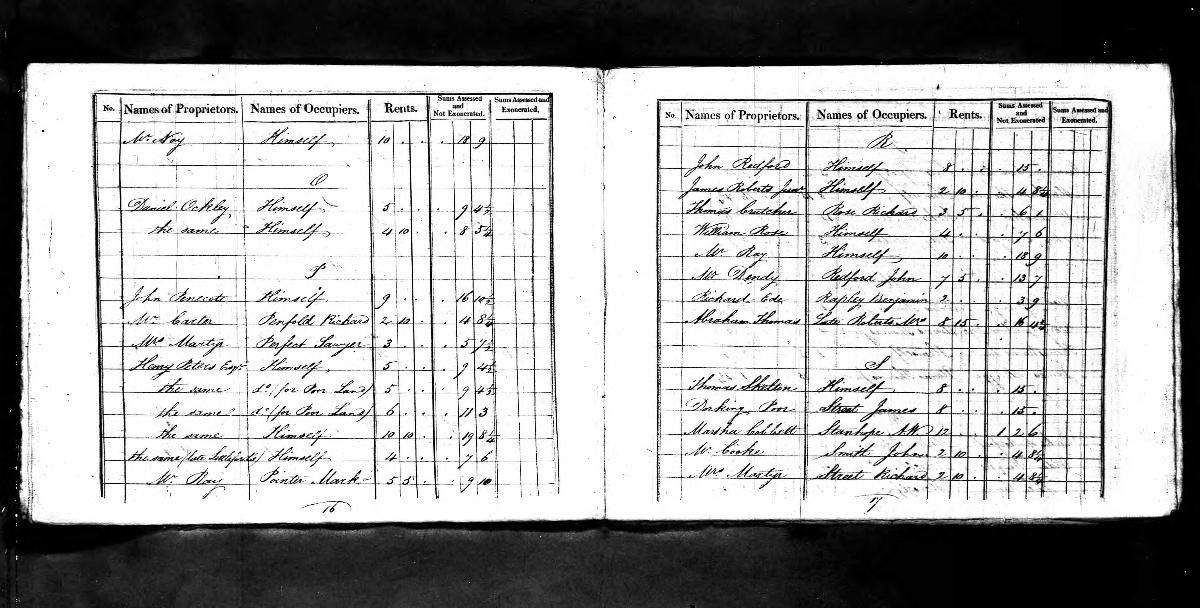 No. Names of Proprietors. Names of Occupiers. Rents. Sums Assessed and Not Exonerated. Sums Assessed and Exonerated.
Mr. Noy Himself 10 . . . 18 9
O
Daniel Ockley Himself 5 . . . 9 4½
the same Himself 4 10 . . 8 5¼
P
John Himself 9 . . . 16 10½
Mr. Carter Penfold Richard 2 10 . . 4 8¼
Mrs Martyr Perfect Sawyer 3 . . . 5 7½
Henry Peters Esqr. Himself 5 . . . 9 4½
the same do (for Poor Land) 5 . . . 9 4½
the same do (for Poor Land) 6 . . . 11 3
the same Himself 10 10 . . 19 8¼
the same (late) Himself 4 . . . 7 6
Mr. Ray Pointer Mark 5 5 . . 9 10
16
No. Names of Proprietors. Names of Occupiers. Rents. Sums Assessed and Not Exonerated Sums Assessed and Exonerated.
R
John Redford Himself 8 . . . 15 .
James Roberts Junr Himself 2 10 . . 4 8¼
Thomas Crutcher Rose Richard 3 5 . . 6 1
William Rose Himself 4 . . . 7 6
Mr. Ray Himself 10 . . . 18 9
Mr Dendy Redford John 7 5 . . 13 7
Richard Ede Rapley Benjamin 2 . . . 3 9
Abraham Thomas Late Roberts Mrs 8 15 . . 16
S
Thomas Skelton Himself 8 . . . 15 .
Dorking Poor Street James 8 . . . 15 .
Martha Cobbett Stanhope 12 . . 1 2 6
Mr Cooke Smith John 2 10 . . 4 8¼
Mrs Martyr Street Richard 2 10 . . 4 8¼
17